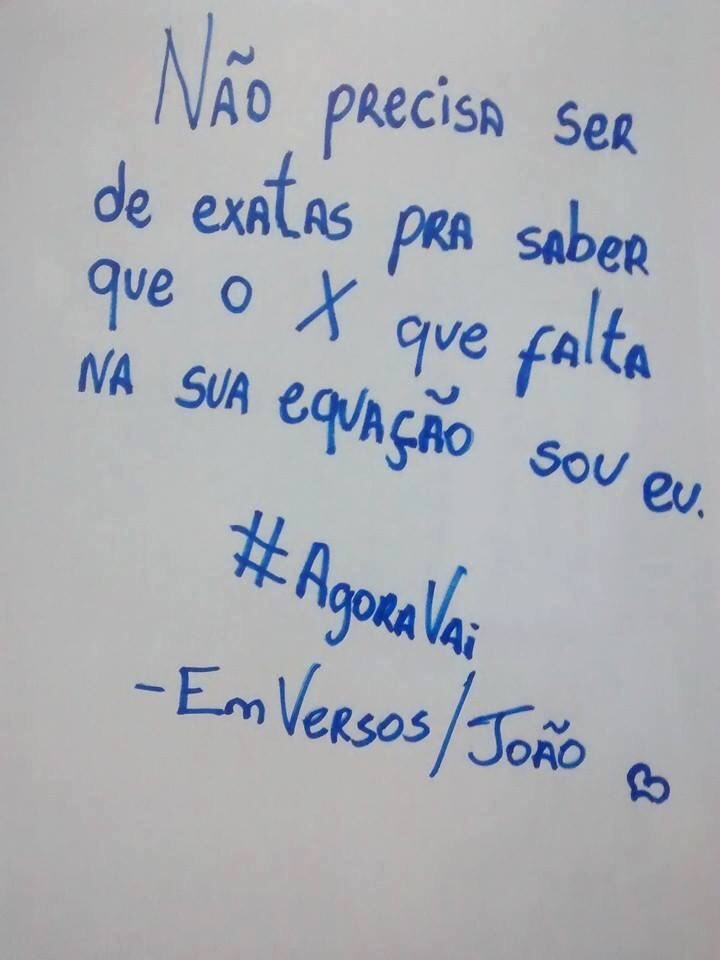 Não precisa ser
de exatas pra saber
que o X que falta
na sua equação sou eu.
#AgoraVai
- Em Versos/João